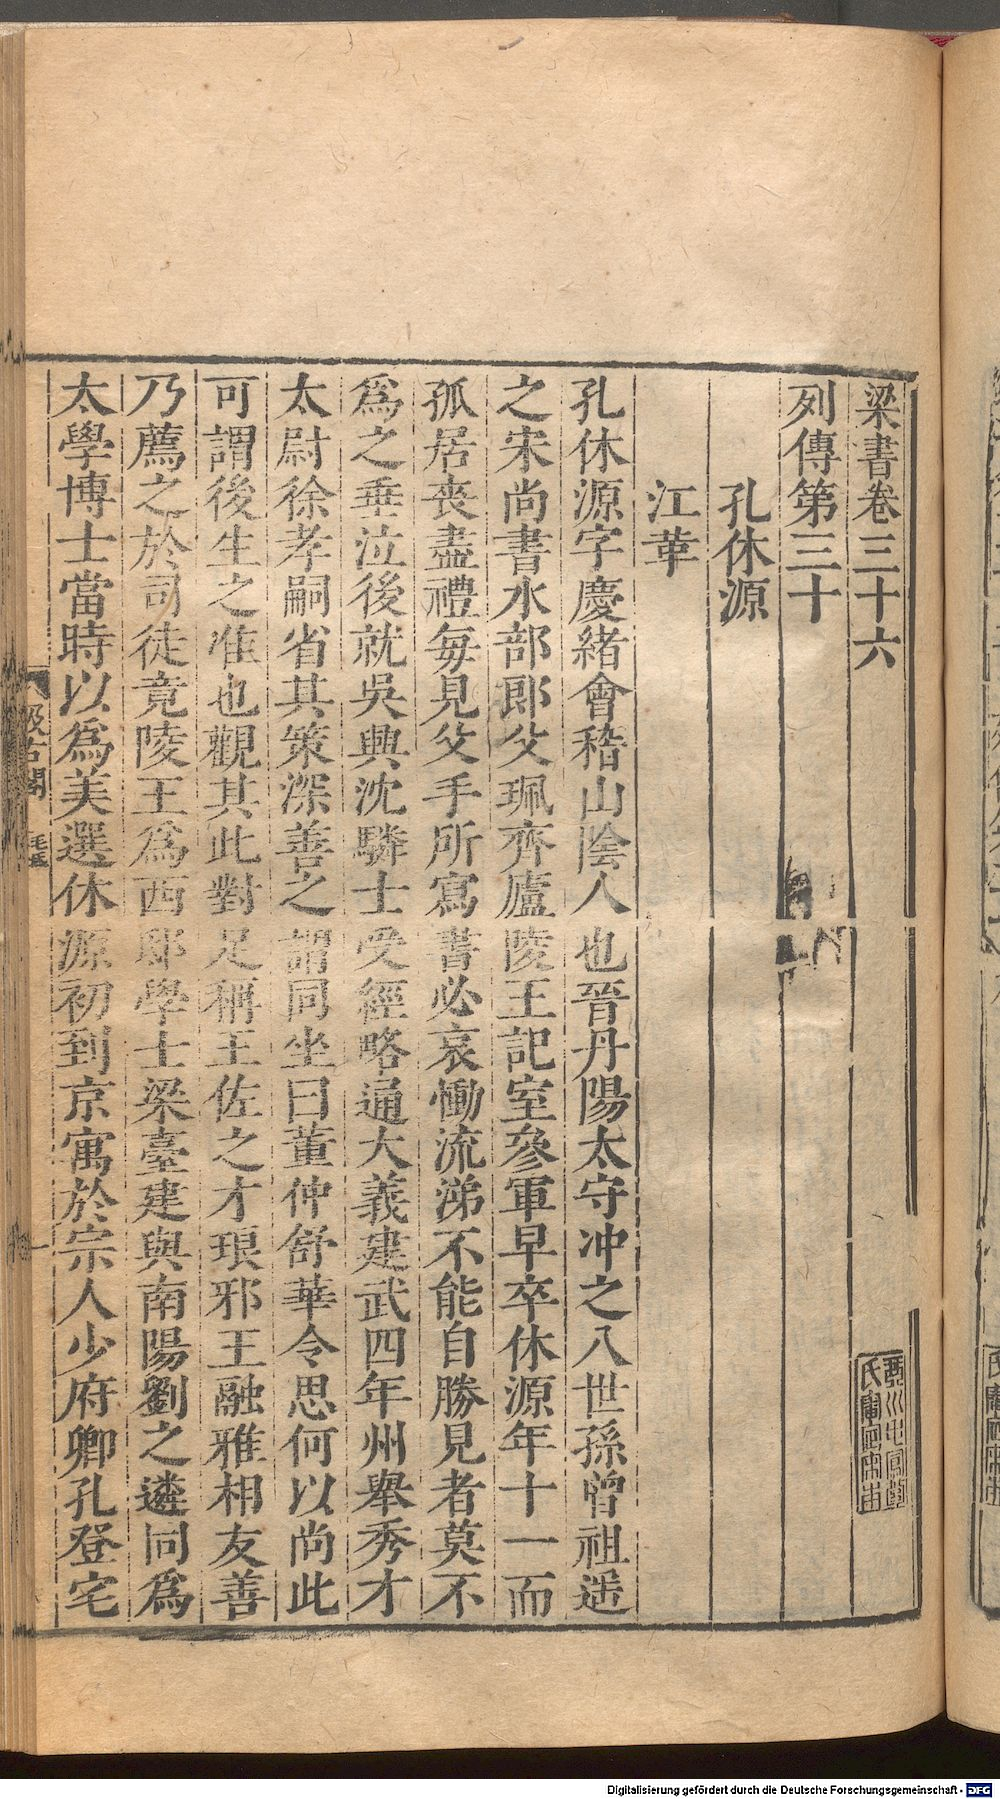 梁書卷三十六
琴川毛鳳苞
氏審定宋本
列傳第三十
孔休源
江革
孔休源字慶緒會稽山陰人也晉丹陽太守冲之八世孫曾祖遥
之宋尚書水部郎父珮齊廬陵王記室參軍早卒休源年十一而
孤居喪盡禮每見父手所寫書必哀慟流涕不能自勝見者莫不
爲之垂泣後就吳興沈驎士受經略通大義建武四年州舉秀才
太尉徐孝嗣省其策深善之謂同坐曰董仲舒華令思何以尚此
可謂後生之准也觀其此對足稱王佐之才琅邪王融雅相友善
乃薦之於司徒竟陵王爲西邸學士梁臺建與南陽劉之遴同爲
太學博士當時以爲美選休源初到京寓於宗人少府卿孔登宅
汲古閣
Digitalisierung gefördert durch die Deutsche Forschungsgemeinschaft - DFG